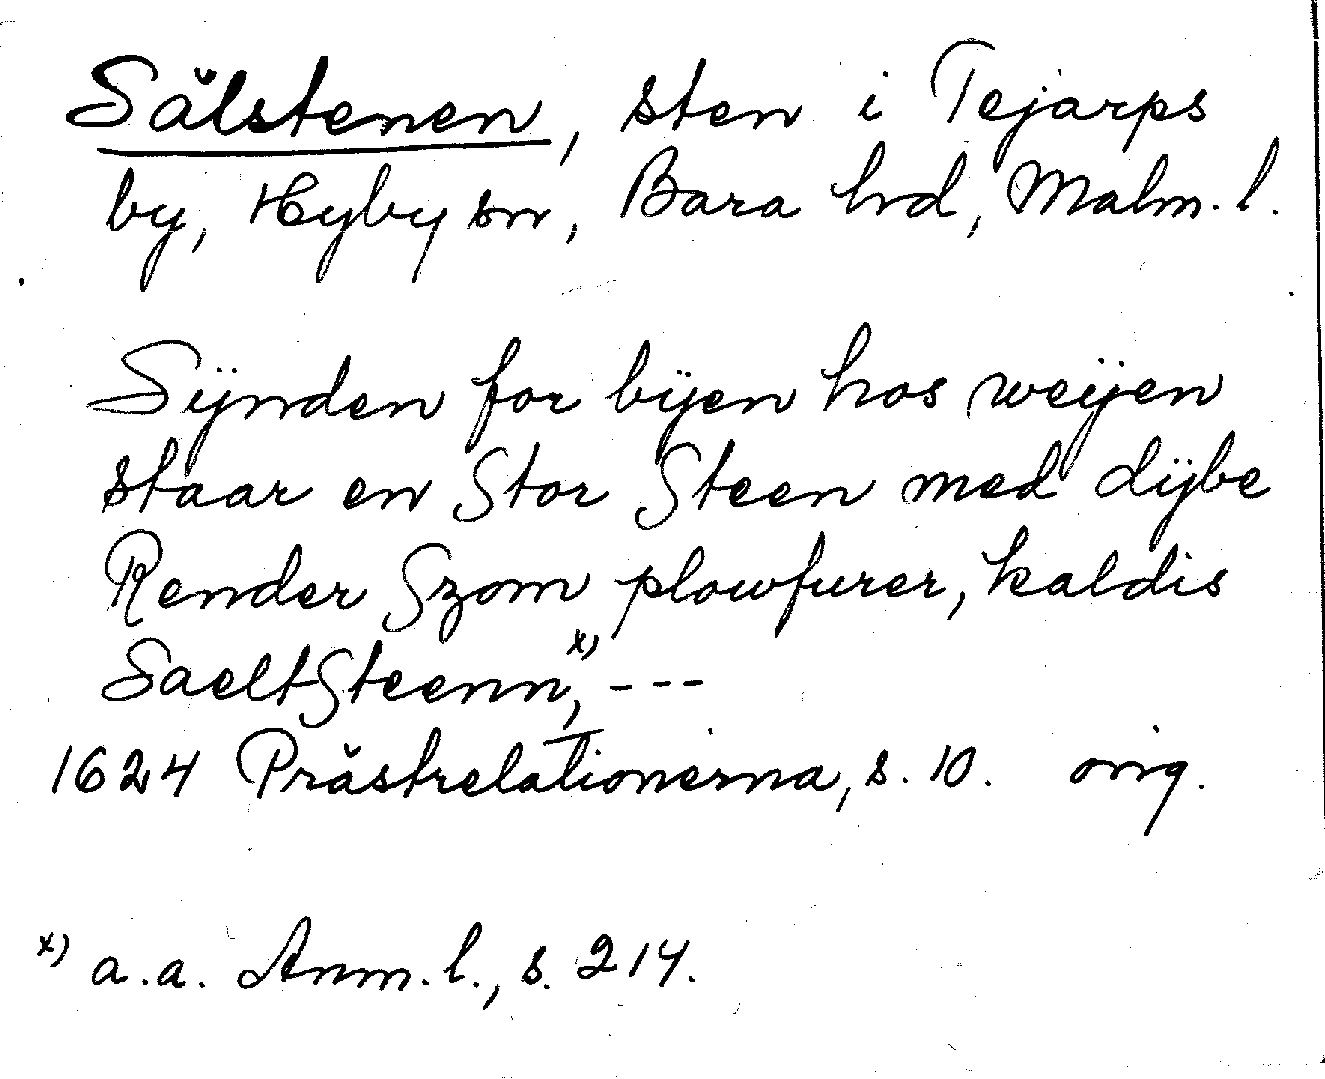 Sälstenen, sten i Tejarps
by, Hyby sn, Bara hd, Malm. l.
Sÿnden for bÿen hos weÿen
staar en Stor Steen med dÿbe
Render Szom plowfurer, kaldis
SaeltSteenn,x) ---
1624 Prästrelationerna, s. 10. orig.
x) a.a. Anm. 1., s. 214.